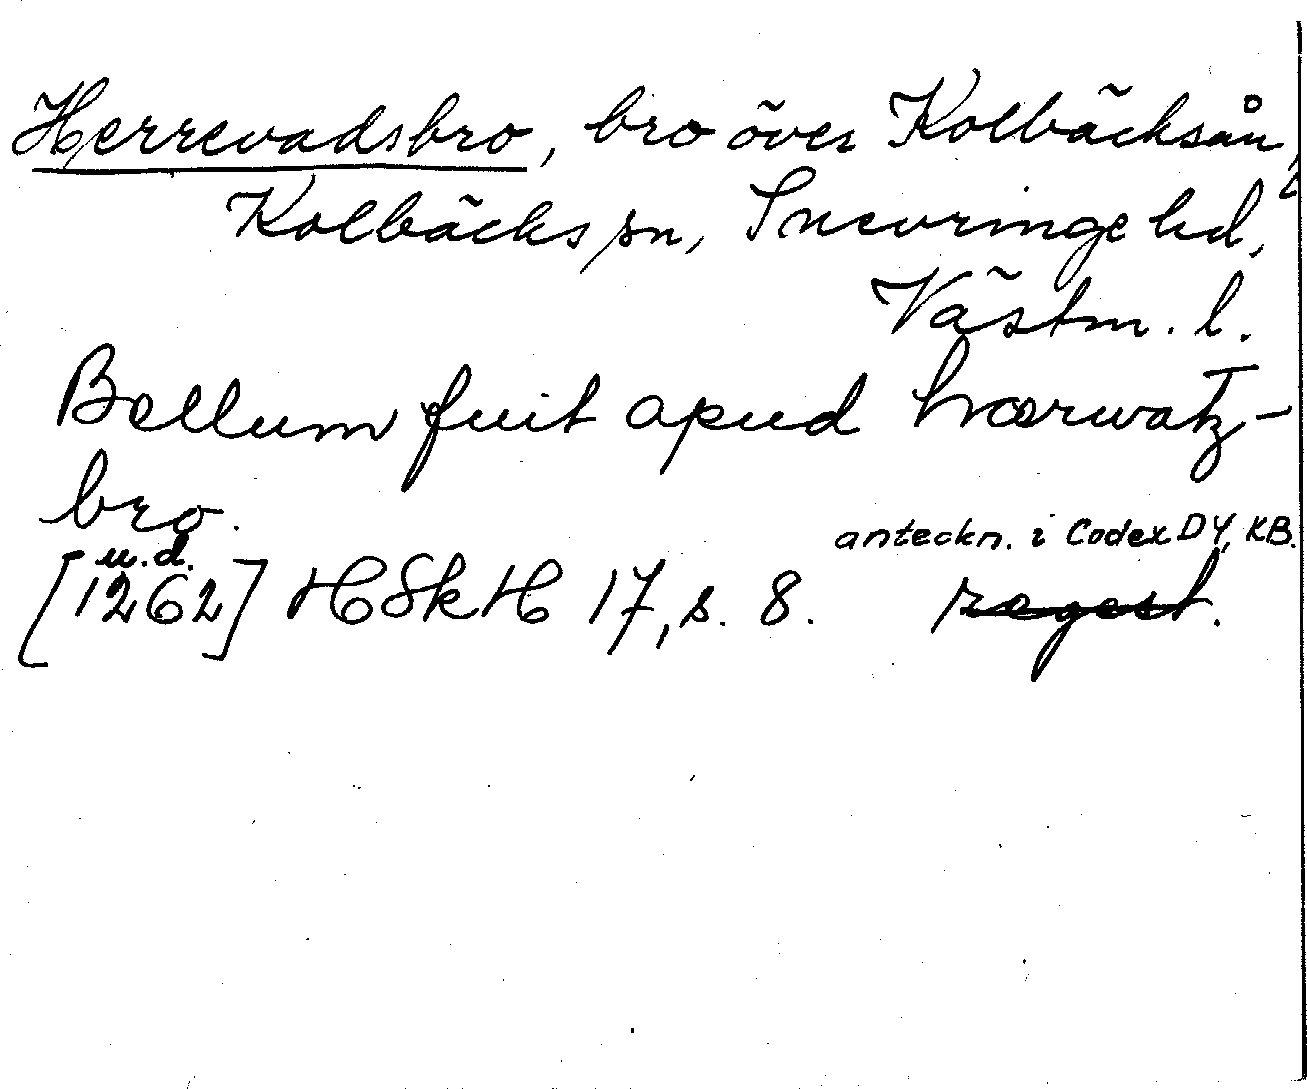 Herrevadsbro, bro över Kolbäcksån,
Kolbäcks sn, Snevringe hd,
Västm. l.
Bellum fuit apud hærwatz-
bro.
anteckn. i Codex DY, KB.
u.d.
[1262] HSkH 17, s. 8. regest.